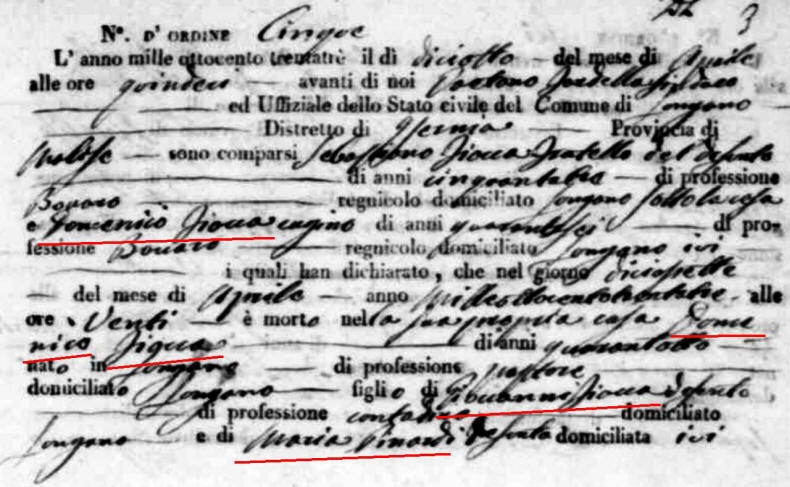 3
N°. D' ORDINE Cinque
L' anno mille ottocento trentatrè il dì diciotto del mese di Aprile
alle ore quindeci avanti di noi Gaetano Sindaco
ed Uffiziale dello Stato civile del Comune di Longano
Distretto di Isernia Provincia di
Molise sono comparsi Sebastiano Fratello del defunto
di anni cinquantatre di professione
Bovaro regnicolo domiciliato Longano sotto la casa
e Domenico cugino di anni quarantasei di pro-
fessione Bovaro regnicolo domiciliato Longano ivi
i quali han dichiarato, che nel giorno diciassette
del mese di Aprile anno Milleottocentotrentatre alle
ore Venti è morto nella sua propria casa Dome
nico di anni quarantotto
nato in Longano di professione pastore
domiciliato Longano figlio di Giovanni defunto
di professione contadino domiciliato
Longano e di Maria defunta domiciliata ivi